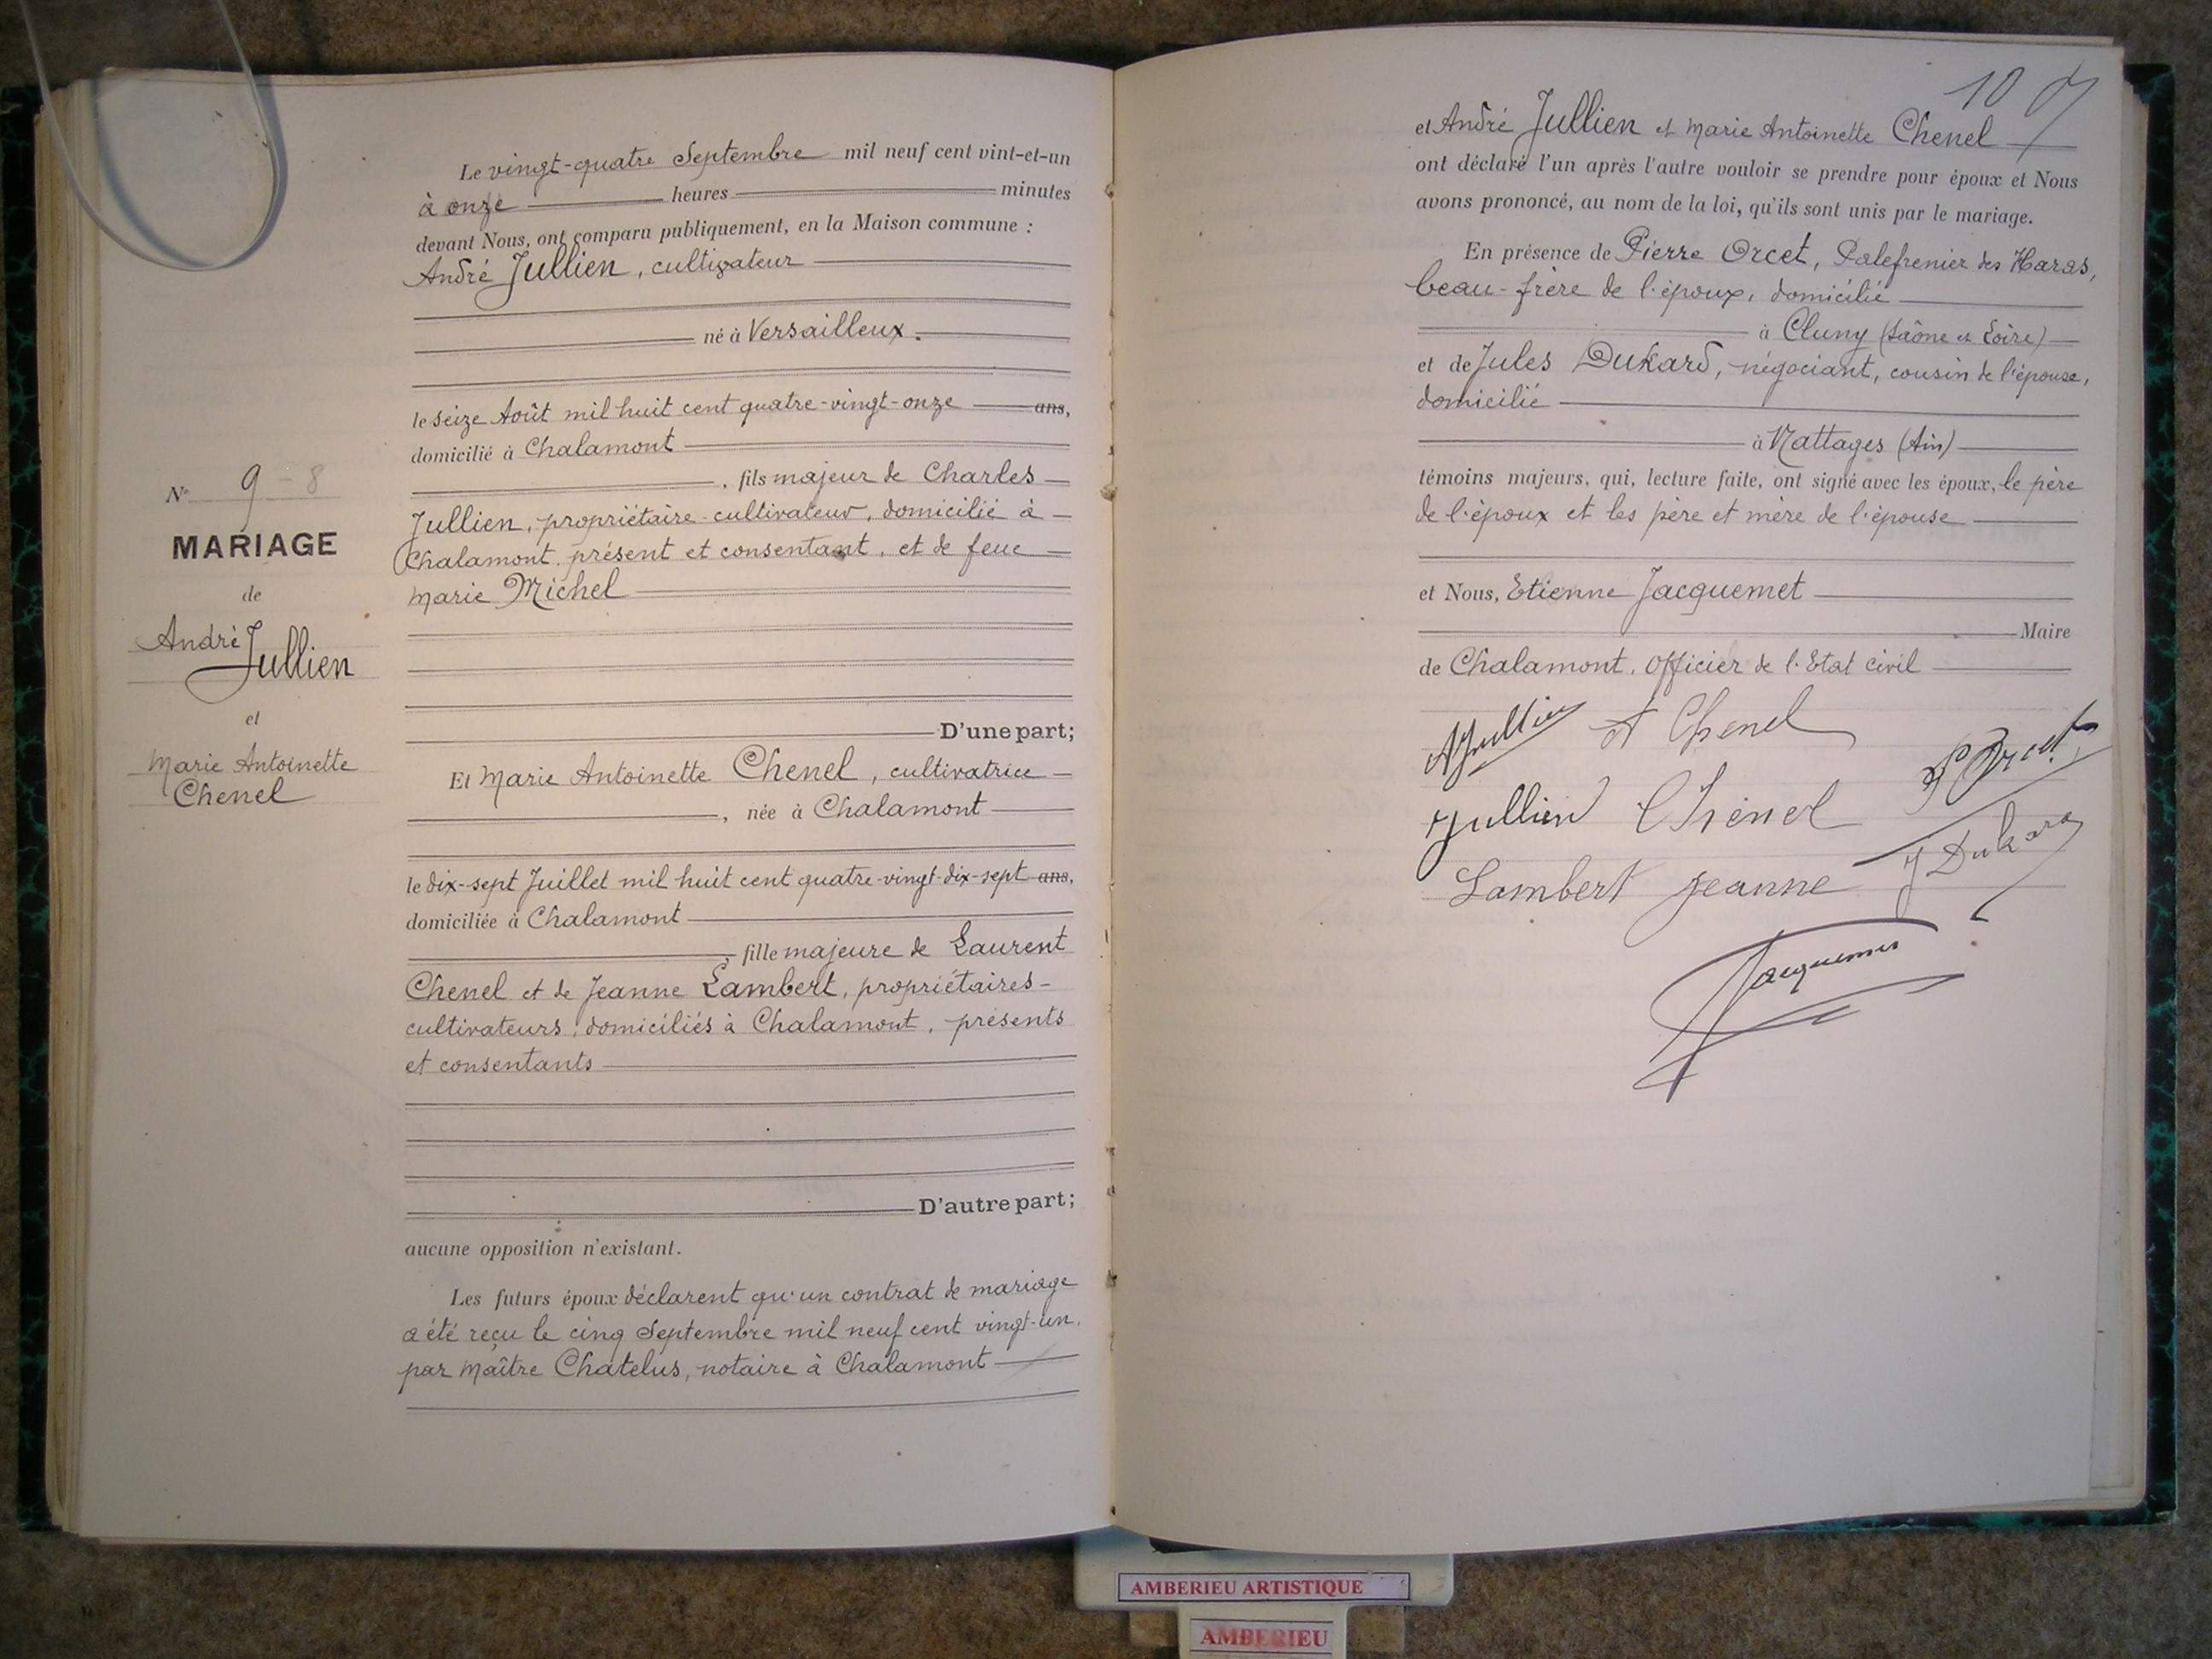 Le vingt-quatre Septembre mil neuf cent vint-et-un
à onze heures minutes
devant Nous, ont comparu publiquement, en la Maison commune :
André Jullien, cultivateur
né à Versailleux.
le seize Août mil huit cent quatre-vingt-onze ans,
domicilié à Chalamont
, fils majeur de Charles
Jullien, propriétaire-cultivateur, domicilié à
Chalamont, présent et consentant, et de feue
Marie Michel
D'une part;
Et Marie Antoinette Chenel, cultivatrice
, née à Chalamont
le dix-sept Juillet mil huit cent quatre-vingt-dix-sept ans,
domiciliée à Chalamont
, fille majeure de Laurent
Chenel et de Jeanne Lambert, propriétaires-
cultivateurs, domiciliés à Chalamont, présents
et consentants
D'autre part;
aucune opposition n'existant.
Les futurs époux déclarent qu'un contrat de mariage
a été reçu le cinq Septembre mil neuf cent vingt-un,
par Maître Chatelus, notaire à Chalamont
N° 9 - 8
MARIAGE
de
André
Jullien
et
Marie Antoinette
Chenel
10
et André Jullien et Marie Antoinette Chenel
ont déclaré l'un après l'autre vouloir se prendre pour époux et Nous
avons prononcé, au nom de la loi, qu'ils sont unis par le mariage.
En présence de Pierre Orcet, Palefrenier des Haras,
beau-frère de l'époux, domicilié
à Cluny (Saône et Loire)
et de Jules Dukard, négociant, cousin de l'épouse,
domicilié
à Nattages (Ain)
témoins majeurs, qui, lecture faite, ont signé avec les époux, le père
de l'époux et les père et mère de l'épouse
et Nous, Etienne Jacquemet
Maire
de Chalamont, Officier de l'Etat civil
AJullien A Chenel
P Orcet
Jullien Chenel
J Dukard
Lambert Jeanne
Jacquemet
AMBERIEU ARTISTIQUE
AMBERIEU